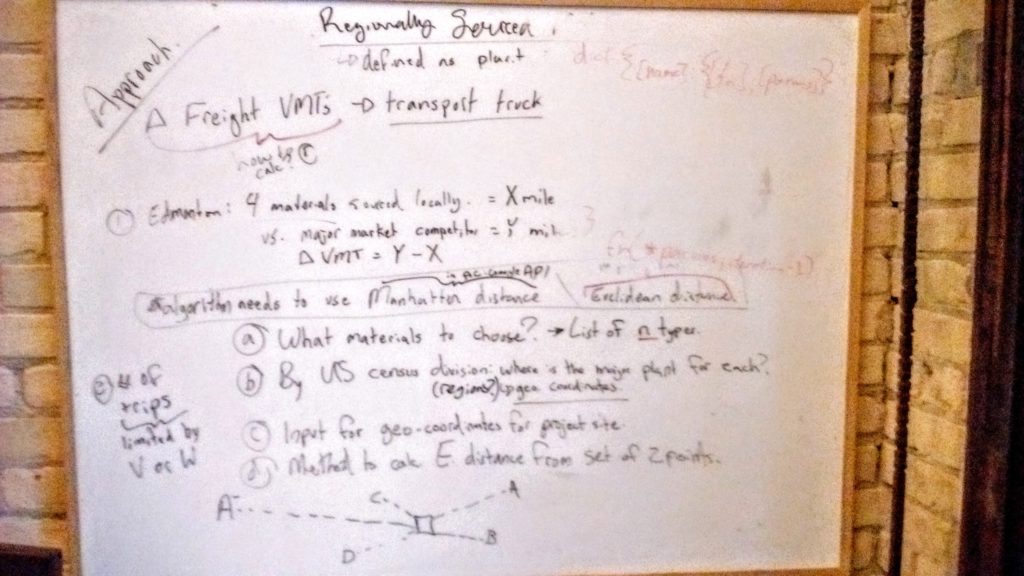 Approach.
Regionally Sourced:
→ defined as plant
dict {[name]: {[fn], [params]}}
Δ Freight VMTs → transport truck
how to calc?
① Edmonton: 4 materials sourced locally. = X mile
vs. major market competitor = Y mile
Δ VMT = Y - X
API
Algorithm needs to use Manhattan distance \ Euclidean distance
ⓐ What materials to choose? → List of n types.
ⓑ By US census division: where is the major plant for each?
(regions?) geo coordinates
② # of trips
limited by
V or W
ⓒ Input for geo-coordinates for project site.
ⓓ Method to calc E. distance from set of 2 points.
A
C
A
B
D